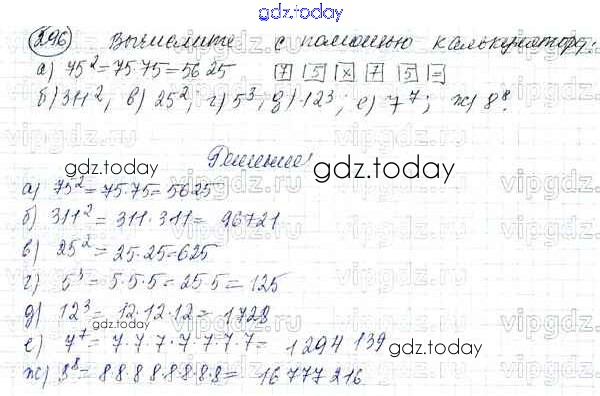 gdz.today
296 Вычислите с помощью калькулятора:
а) 75² = 75·75 = 5625 7 5 x 7 5 =
б) 311², в) 25²; г) 5³, д) 12³; е) 7⁷; ж) 8⁸.
Решение
gdz.today
а) 75² = 75·75 = 5625
б) 311² = 311·311 = 96721
в) 25² = 25·25 = 625
г) 5³ = 5·5·5 = 25·5 = 125
д) 12³ = 12·12·12 = 1728
gdz.today
е) 7⁷ = 7·7·7·7·7·7·7 = 1294 139
gdz.today
ж) 8⁸ = 8·8·8·8·8·8·8 = 16 777 216